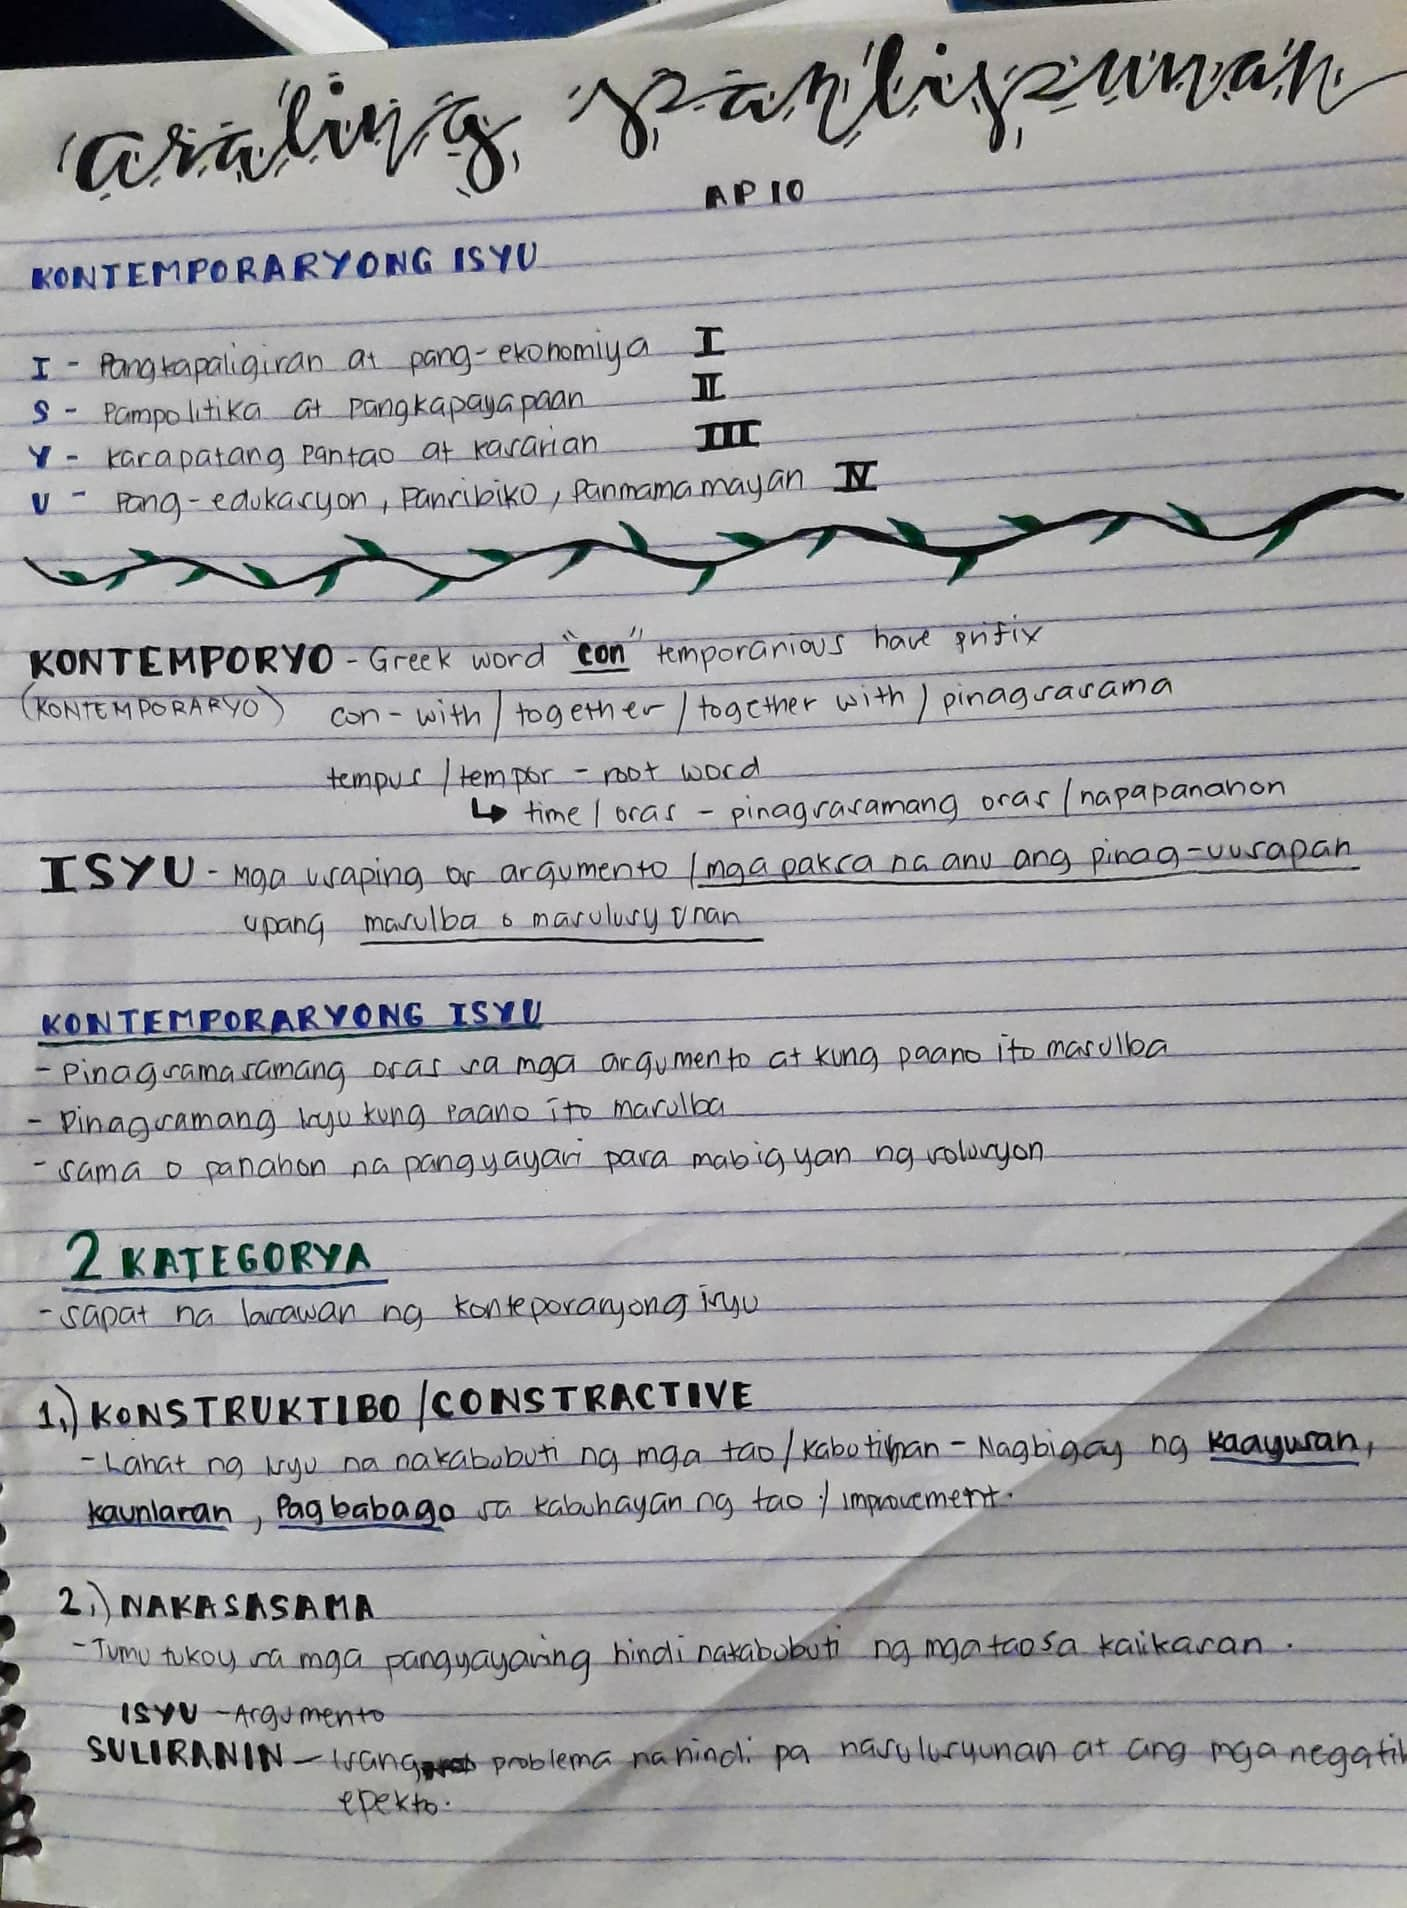 araling panlipunan
AP 10
KONTEMPORARYONG ISYU
I - Pangkapaligiran at pang-ekonomiya I
S - Pampolitika at Pangkapayapaan II
Y - Karapatang Pantao at Kasarian III
U - Pang-edukasyon, Pansibiko, Panmamamayan IV
KONTEMPORYO - Greek word "con" temporanious have prifix
(KONTEMPORARYO) con - with / together / together with / pinagsasama
tempus / tempor - root word
↳ time / oras - pinagsasamang oras / napapanahon
ISYU - Mga usaping or argumento / mga paksa na anu ang pinag-uusapan
upang masulba o masulusyunan
KONTEMPORARYONG ISYU
- Pinagsamasamang oras sa mga argumento at kung paano ito masulba
- Pinagsamang isyu kung paano ito masulba
- Sama o panahon na pangyayari para mabigyan ng solusyon
2 KATEGORYA
- sapat na larawan ng konteporaryong isyu
1.) KONSTRUKTIBO / CONSTRACTIVE
- Lahat ng isyu na nakabubuti ng mga tao / kabutihan - Nagbigay ng kaayusan,
kaunlaran, Pagbabago sa kabuhayan ng tao / improvement.
2.) NAKASASAMA
- Tumutukoy sa mga pangyayaring hindi nakabubuti ng mga tao sa kalikasan.
ISYU - Argumento
SULIRANIN - Isang problema na hindi pa nasulusyunan at ang mga negatib
epekto.